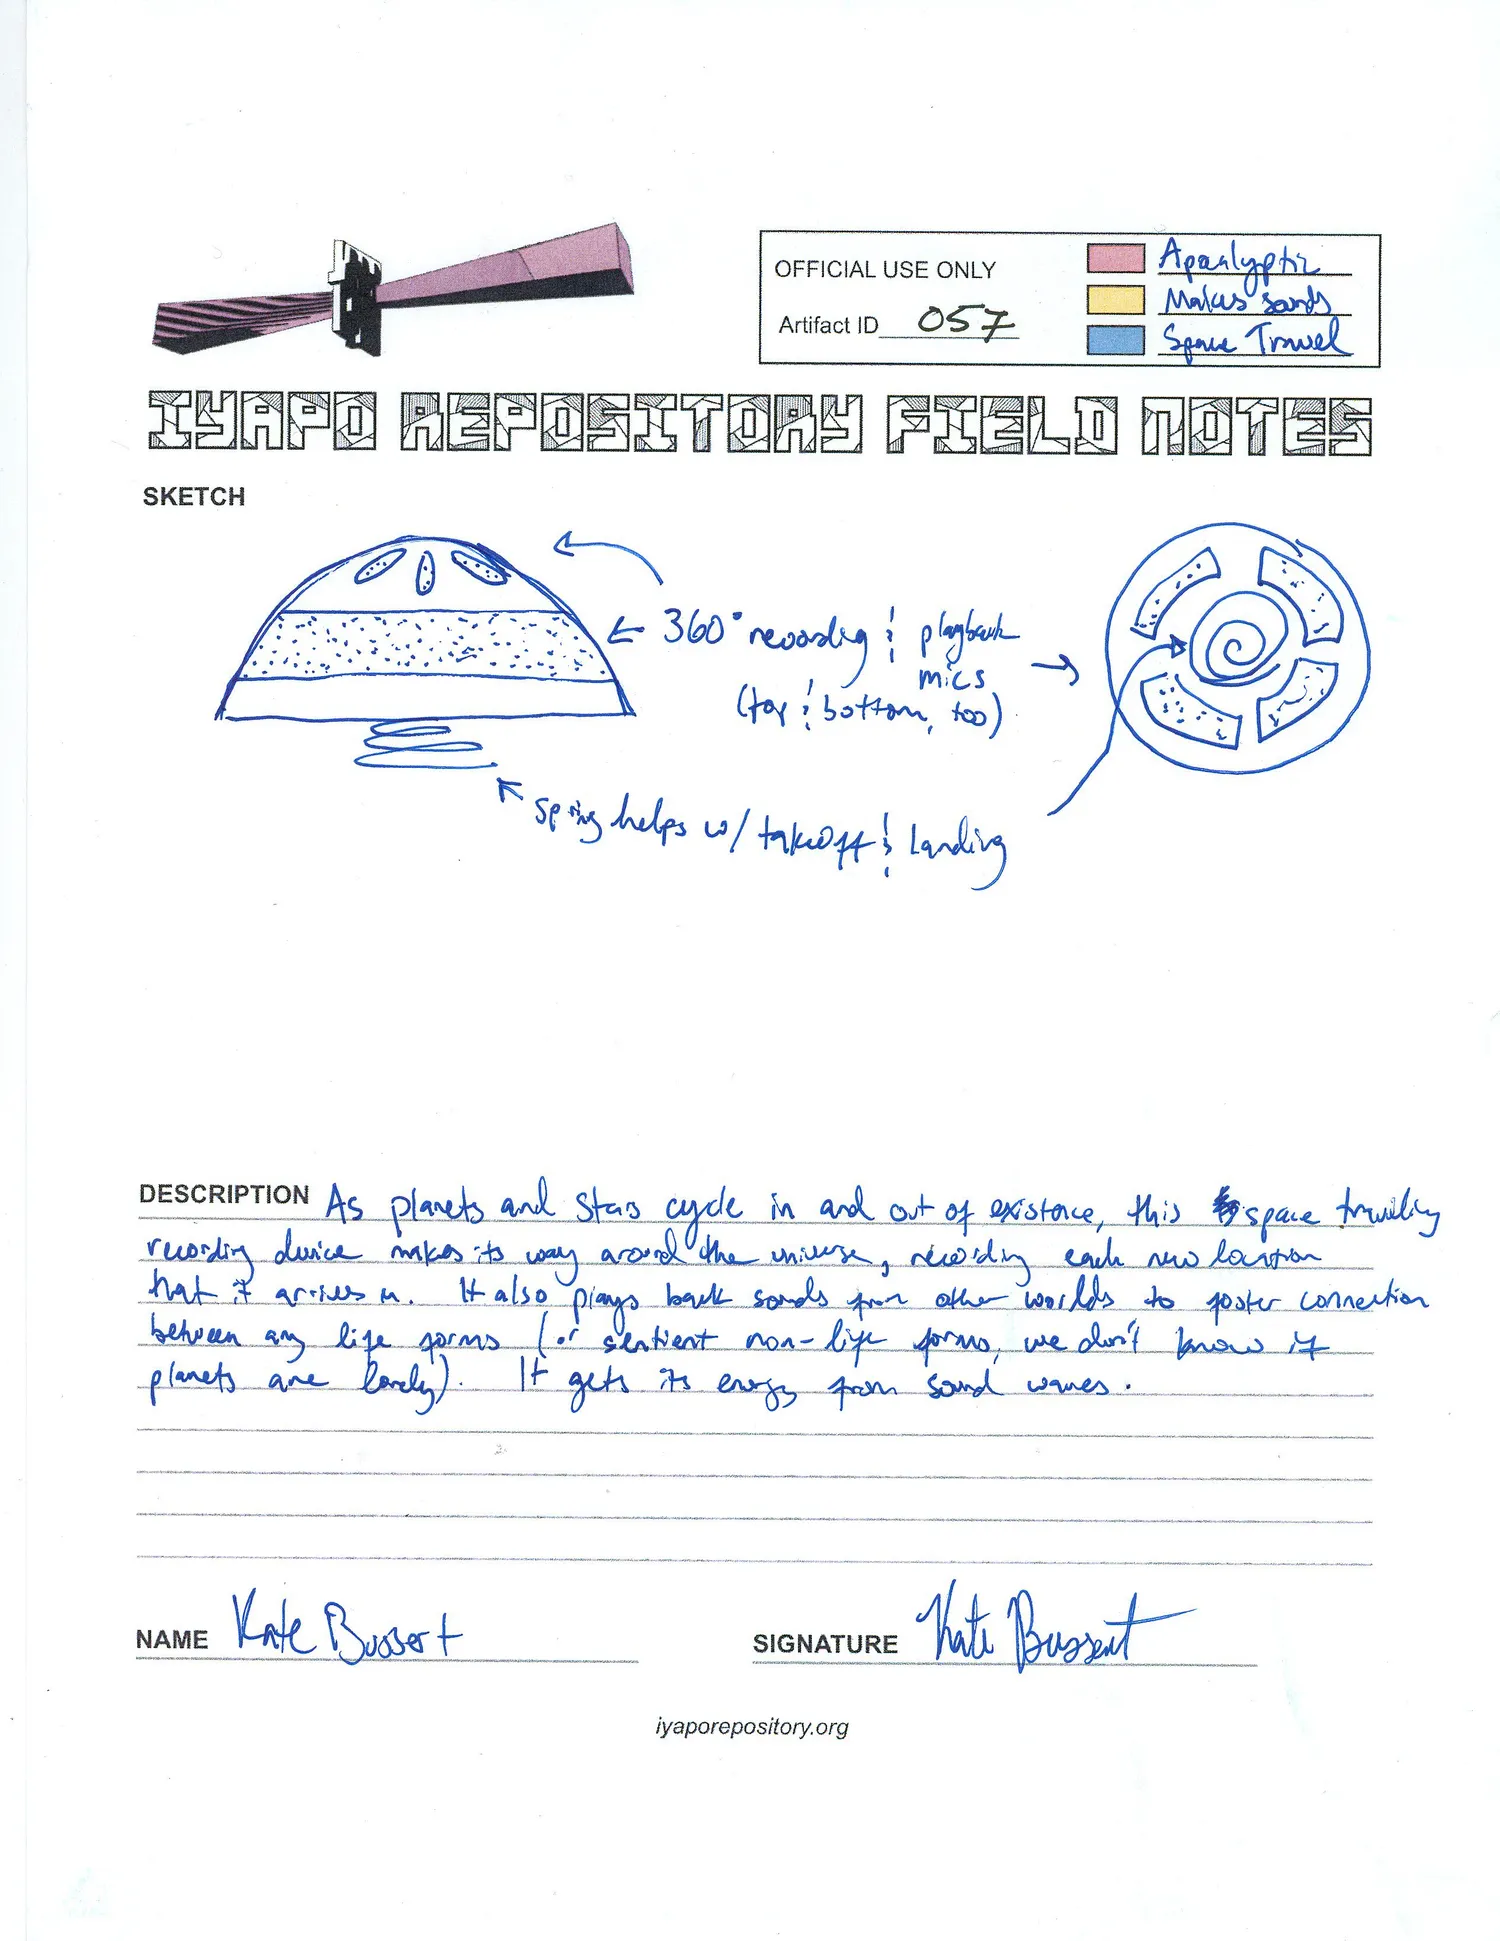 OFFICIAL USE ONLY
Artifact ID 057
Apocalyptic
Makes sounds
Space Travel
IYAPO REPOSITORY FIELD NOTES
SKETCH
360° recording & playback
mics
(top & bottom, too)
spring helps w/ takeoff & landing
DESCRIPTION As planets and stars cycle in and out of existence, this space traveling
recording device makes its way around the universe, recording each new location
that it arrives in. It also plays back sounds from other worlds to foster connection
between any life forms (or sentient non-life forms, we don't know if
planets are lonely). It gets its energy from sound waves.
NAME Kate Bussert
SIGNATURE Kate Bussert
iyaporepository.org